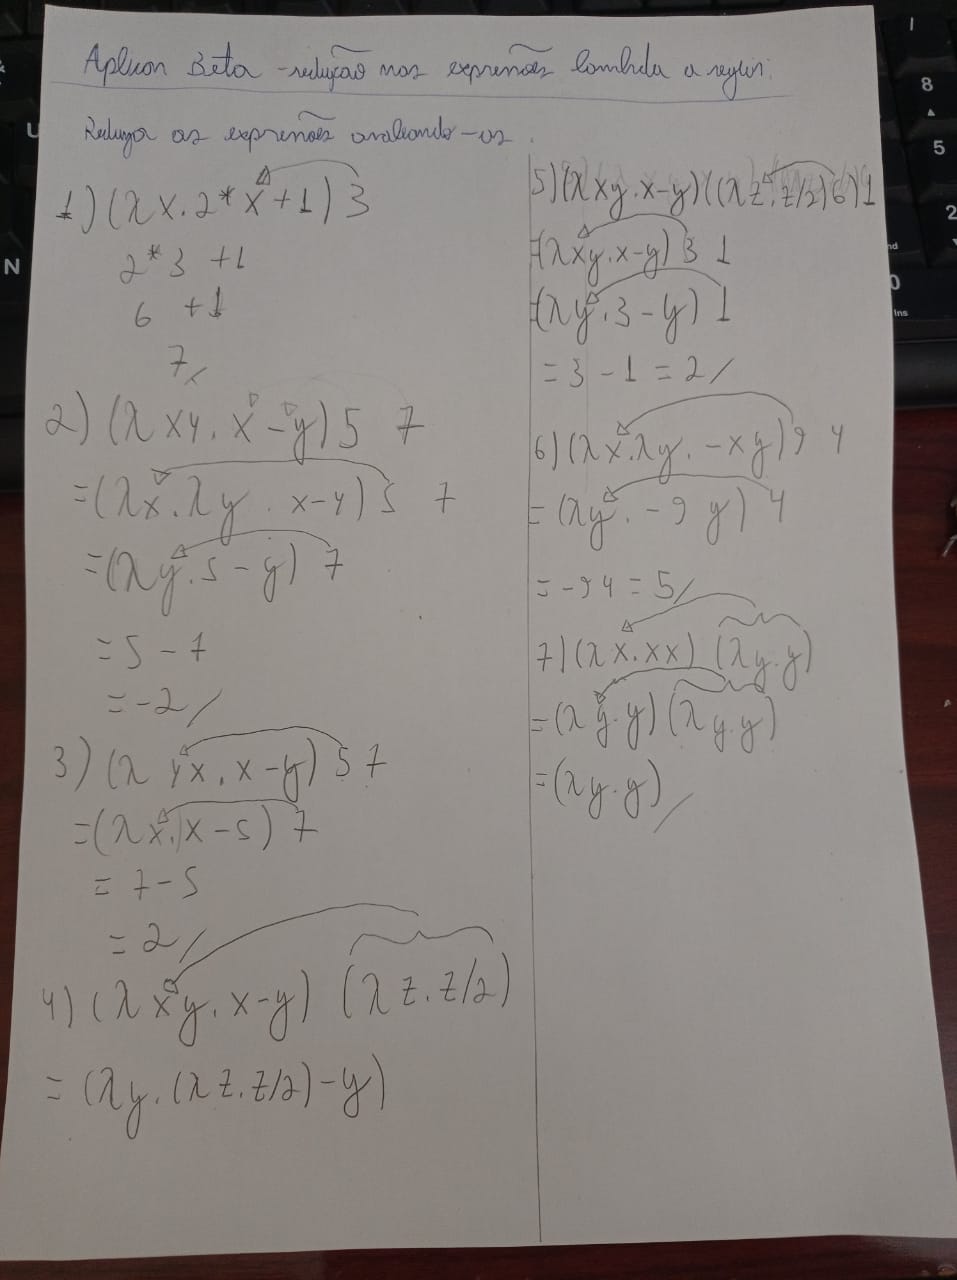 Aplicar Beta-redução nas expressões lambda a seguir:
Reduza as expressões avaliando-as.
1) (λx.2*x+1) 3
2*3 +1
6 +1
7
2) (λxy.x-y) 5 7
=(λx.λy.x-y) 5 7
=(λy.5-y) 7
=5-7
=-2
3) (λyx.x-y) 5 7
=(λx.x-5) 7
=7-5
=2
4) (λxy.x-y) (λz.z/2)
=(λy.(λz.z/2)-y)
5) (λxy.x-y)((λz.z/2)6)1
=(λxy.x-y) 3 1
=(λy.3-y) 1
=3-1=2
6) (λx.λy.-xy) 9 4
=(λy.-9 y) 4
=-9 4=5
7) (λx.xx) (λy.y)
=(λy.y)(λy.y)
=(λy.y)
U
N
8
5
2
0
Ins